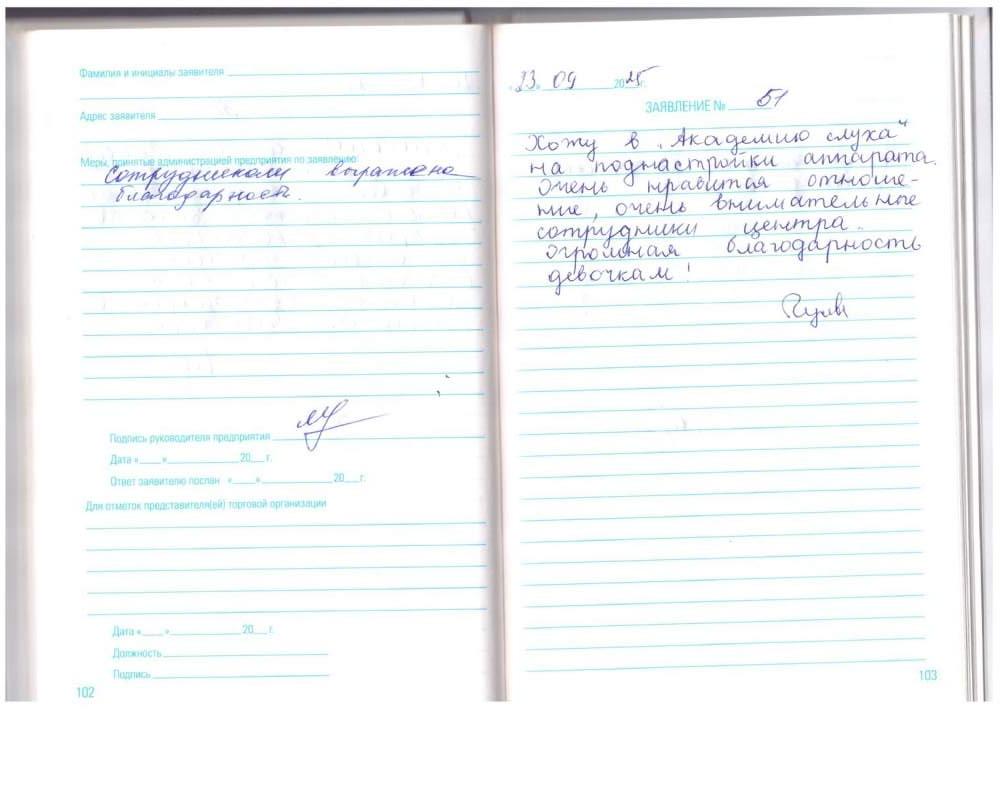 Фамилия и инициалы заявителя
Адрес заявителя
Меры, принятые администрацией предприятия по заявлению
Сотрудникам выражена
благодарность.
Подпись руководителя предприятия
Дата «___»____________20___г.
Ответ заявителю послан «___»____________20___г.
Для отметок представителя(ей) торговой организации
Дата «___»____________20___г.
Должность
Подпись
102
«23» 09 2025г.
ЗАЯВЛЕНИЕ № 51
Хожу в „Академию слуха"
на поднастройки аппарата.
Очень нравится отноше-
ние, очень внимательные
сотрудники центра.
Огромная благодарность
девочкам!
103